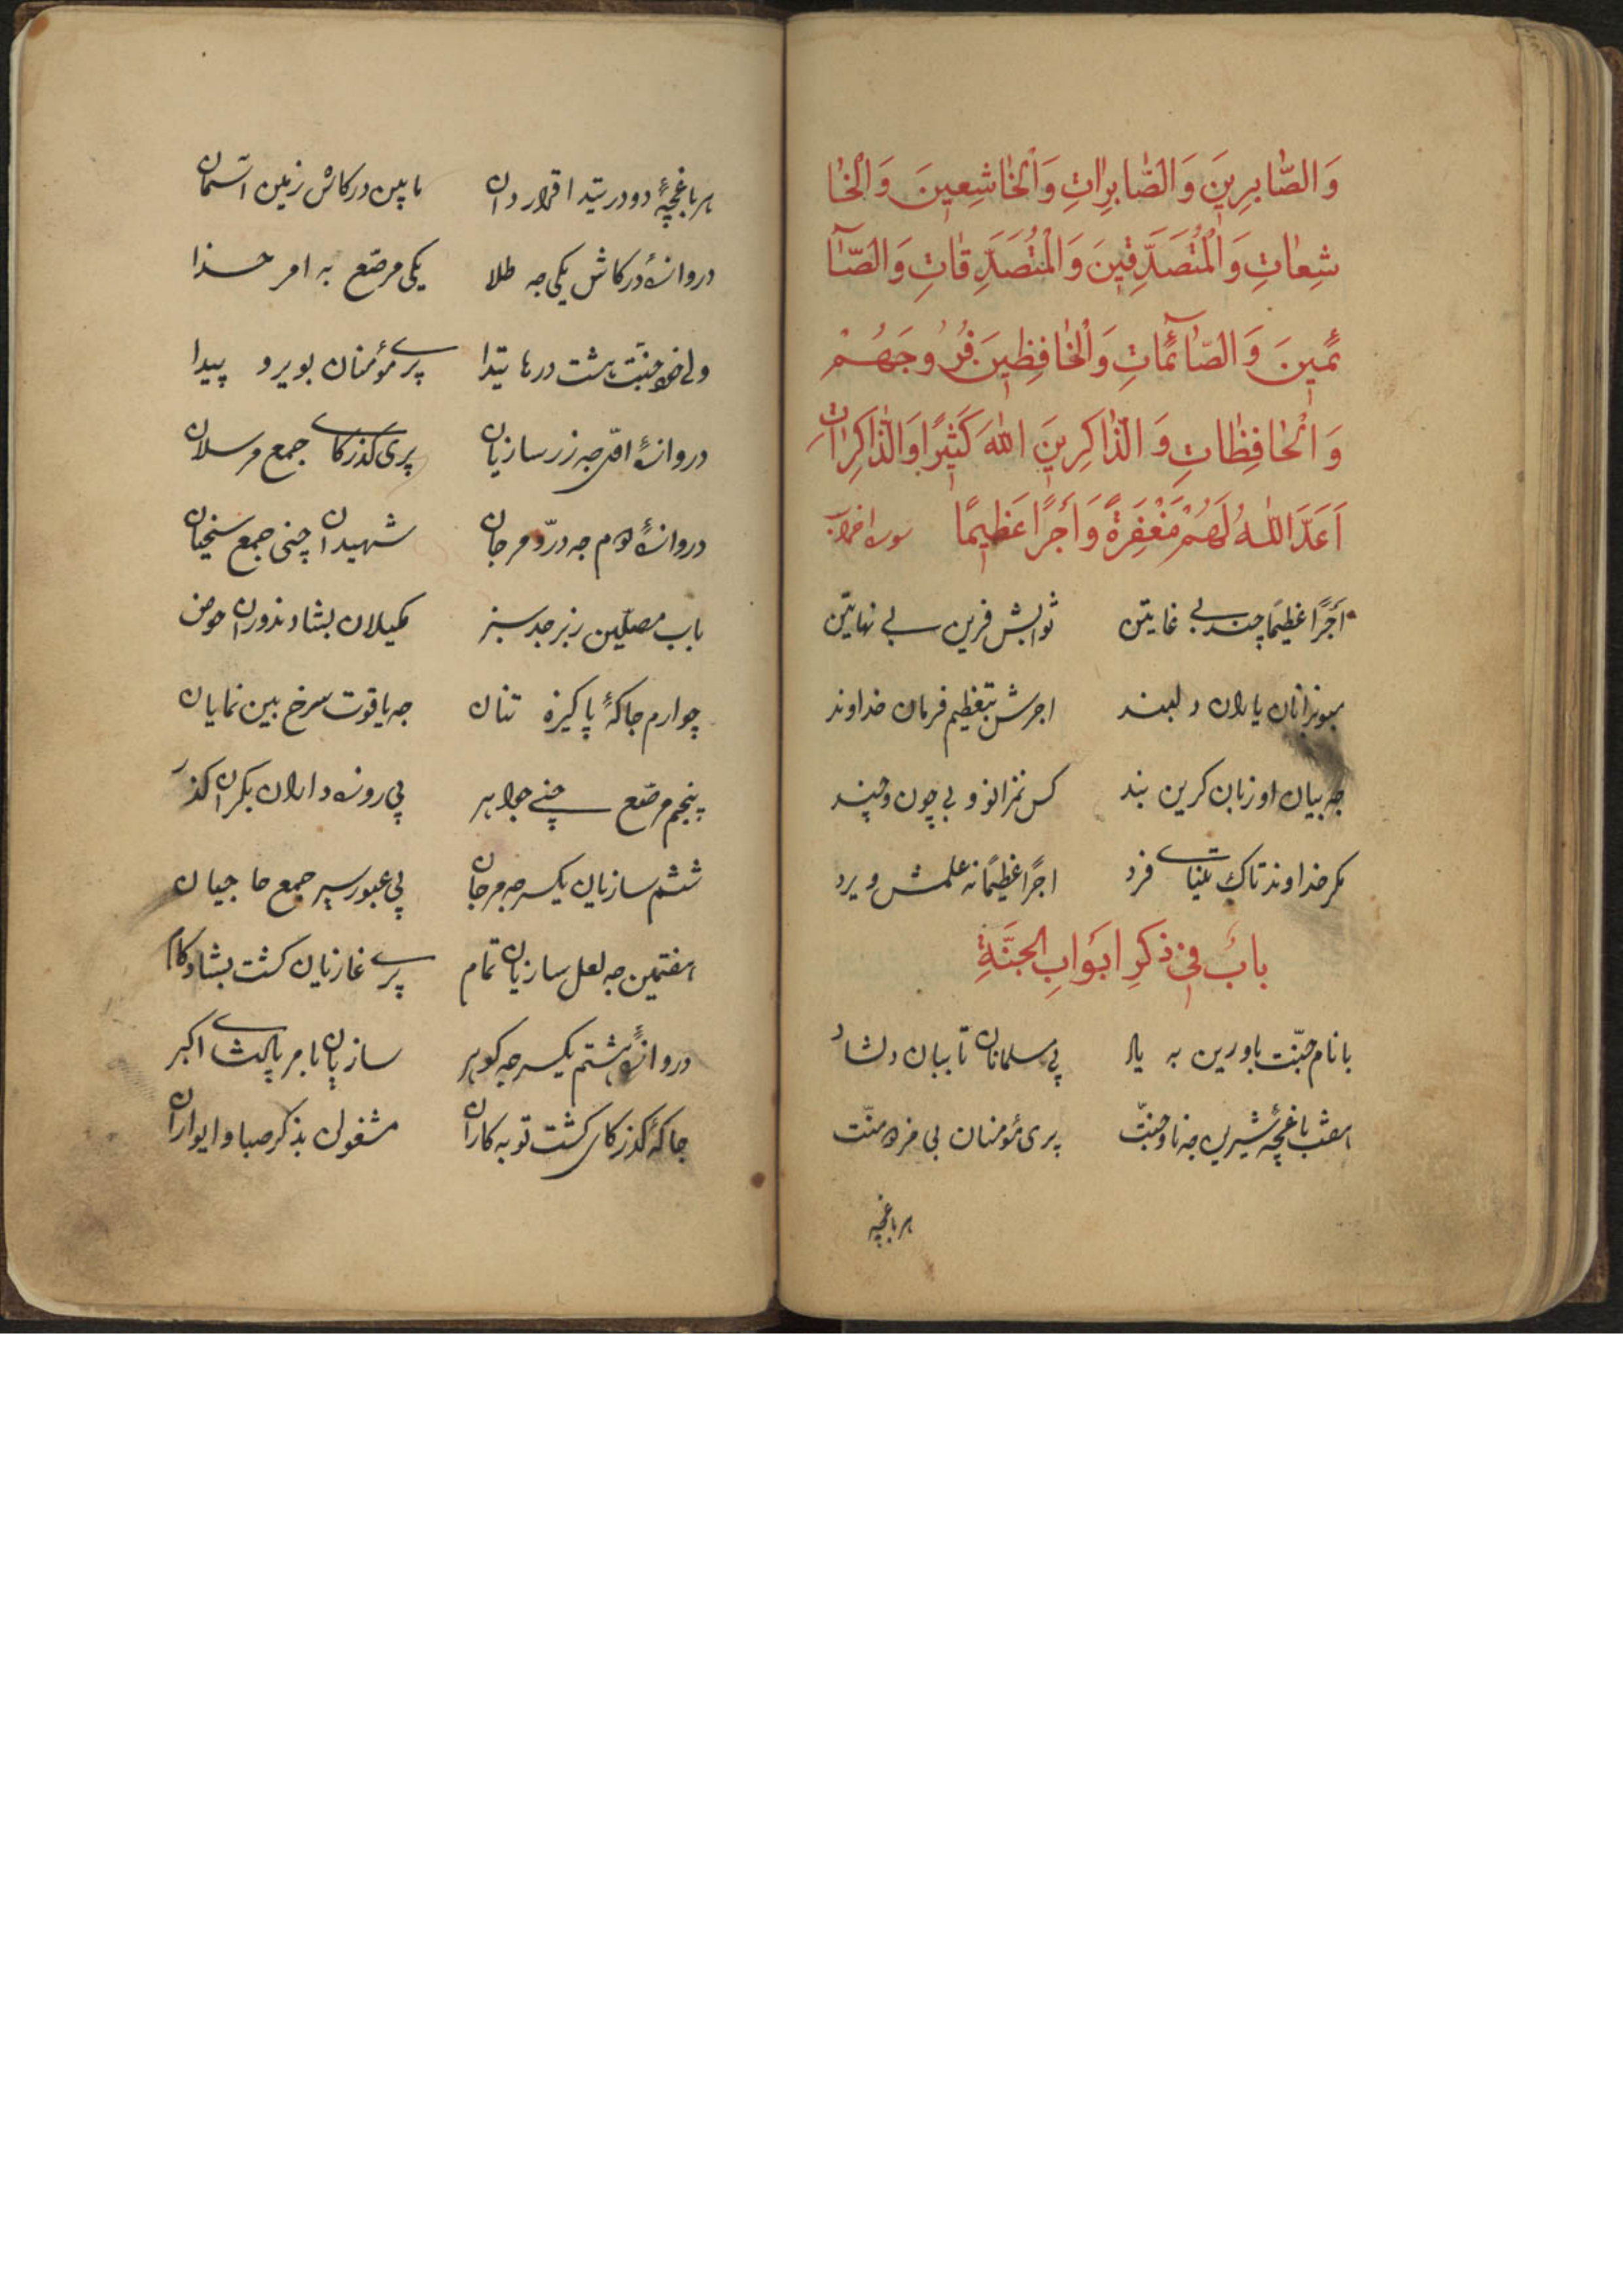 وَالصَّابِرِينَ وَالصَّابِرَاتِ وَالْخَاشِعِينَ وَالْخَا
شِعَاتِ وَالْمُتَصَدِّقِينَ وَالْمُتَصَدِّقَاتِ وَالصَّآ
ئِمِينَ وَالصَّآئِمَاتِ وَالْحَافِظِينَ فُرُوجَهُمْ
وَالْحَافِظَاتِ وَالذَّاكِرِينَ اللهَ كَثِيرًا وَالذَّاكِرَاتِ
اَعَدَّ اللهُ لَهُمْ مَغْفِرَةً وَأَجْرًا عَظِيمًا
أَجْرًا عَظِيمًا چند بی غایتن ثوابش فرین بی نهایتن
یاران دلبند اجرش بتعظیم فرمان خداوند
جه بیان او زبان کرین بند کس نمزانو بی چون و چند
مکر خداوند تاک تنیای فرد اجرًا عظیمًا نه علمش ویرد
بابٌ فی ذکرِ ابوابِ الجنَّةِ
با نام جنّت باورین به یاد پی مسلمانان تا ببان دلشاد
هشت باغچهٔ شیرین جه ناو جنّت پری مؤمنان بی مزد منّت
هر باغچه
هر باغچهٔ دو در تیدا قرار دان مابین درکاش زمین آسمان
دروازهٔ درکاش یکی جه طلا یکی مرصّع به امر خدا
ولی خو جنّت هشت درها تیدا پری مؤمنان بویرو پیدا
دروازهٔ اوّل جه زر سازیان پری کذرکای جمع مرسلان
دروازهٔ دوم جه درّ و مرجان شهیدان چنی جمع سخیان
باب مصلّین زبرجد سبز
چوارم جاکهٔ پاکیزه تنان جه یاقوت سرخ بین نمایان
پنجم مرصّع چنی جواهر پی روزه داران بکران کذر
ششم سازیان یکسر جه مرجان پی عبور سیر جمع حاجیان
هفتمین جه لعل سازیان تمام پری غازیان کشت بشاد کام
دروازهٔ هشتم یکسر جه کوهر سازیان بامر پادشای اکبر
جاکهٔ کذرکای کشت توبه کاران مشغول بذکر صبا و ایواران